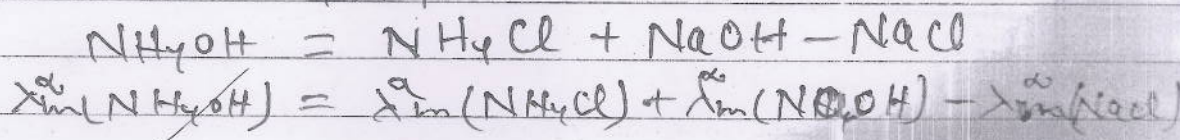 NH4OH = NH4Cl + NaOH - NaCl
λm^∝(NH4OH) = λm^∝(NH4Cl) + λm^∝(NaOH) - λm^∝(NaCl)